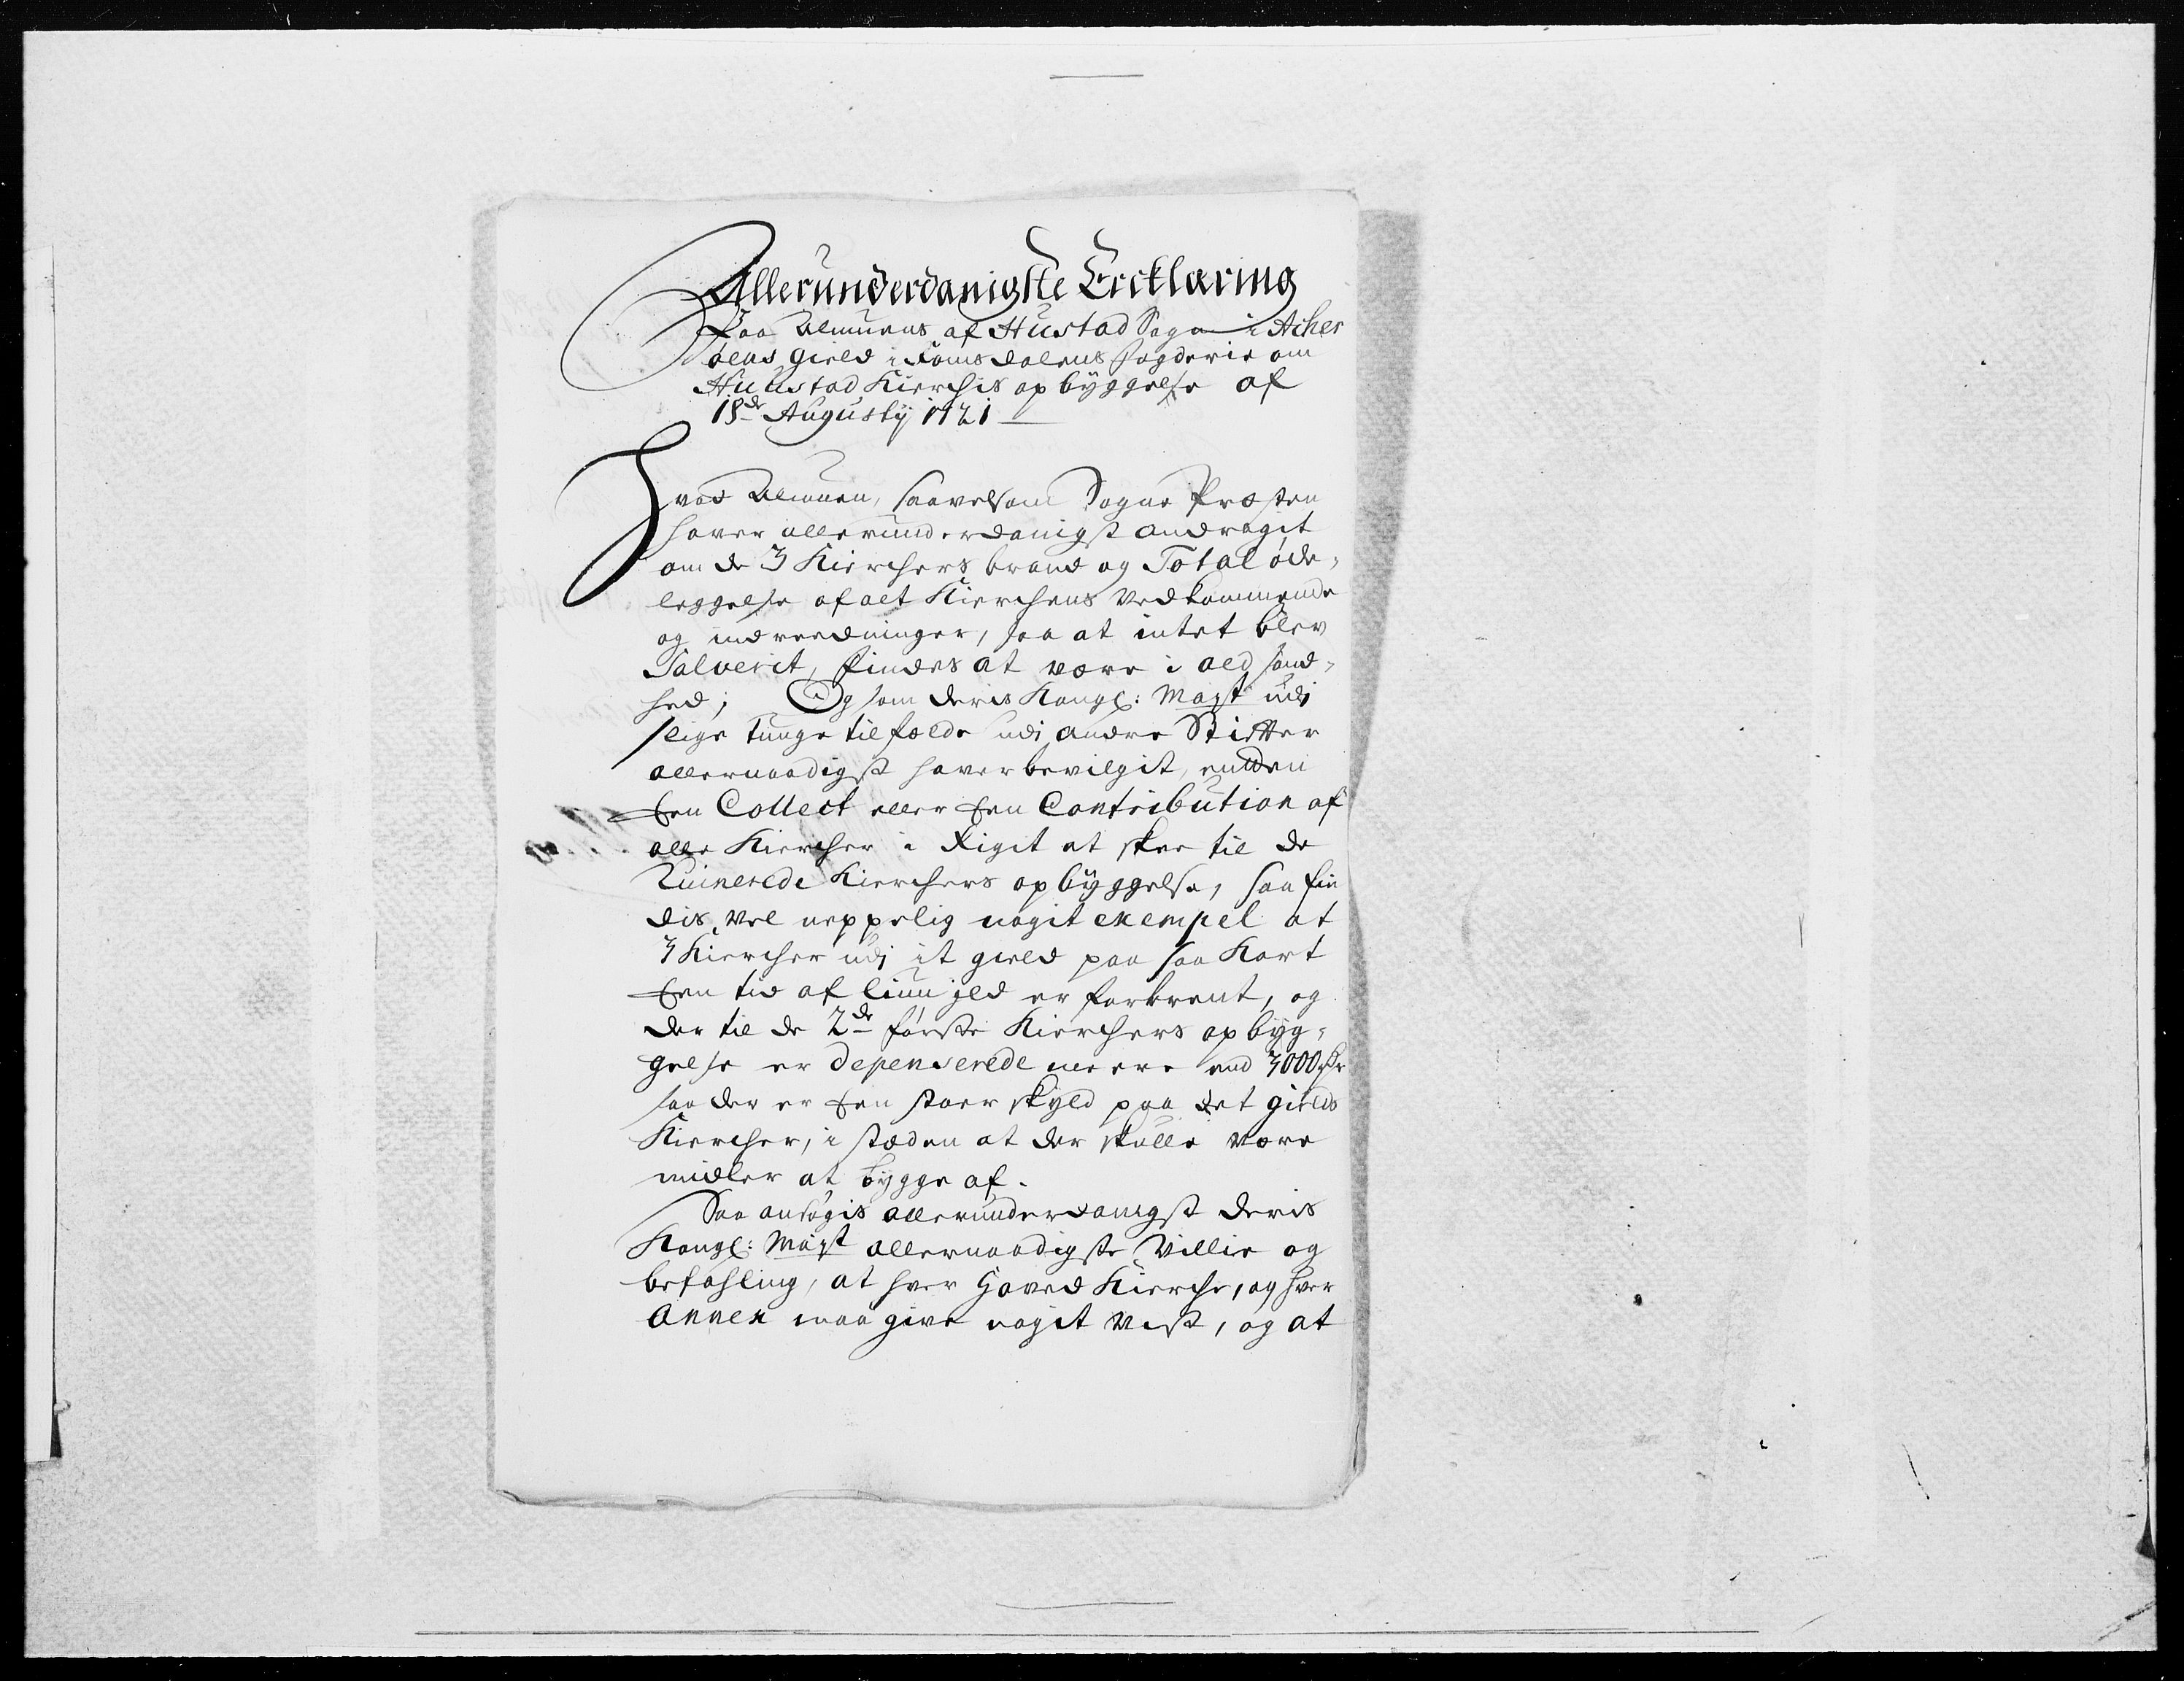 Allerunderdanigste Ercklæring
Paa Almuens af Hustad Sogn i Acher
øens gield i Romsdalens fogderie om
Huustad Kierchis opbyggelse af
18de Augusty 1721
Hvad Almuen, saavelsom Sogne Præsten
haver allerunderdanigst andragit
om de 3 Kierchers brand og Total øde-
leggelse af alt Kierchens vedkommende
og indreedninger, saa at intet blev
Salverit, findes at være i ald sand-
hed; Og som deris Kongl: Mayst udj
slige tunge tilfælde udj andre Stifter
allernaadigst haver bevilgit, enten
Een Collect eller Een Contribution af
alle Kiercher i Riget at skee til de
Ruinerede Kierchers opbyggelse, saa fin
dis vel neppelig nogit exempel at
3 Kiercher udj it gield paa saa Kort
Een tid af liun jld er forbrent, og
der til de 2de første Kierchers opbyg-
gelse er depenserede meere end 3000 Rdr
saa der er Een stoer skyld paa det gields
Kiercher, i stæden at der skulle være
midler at bygge af.
Saa ansøgis allerunderdanigst deris
Kongl: Mayst allernaadigste Villie og
befahling, at hver Hoved Kierche, og hver
Annex maa give nogit vist, og at